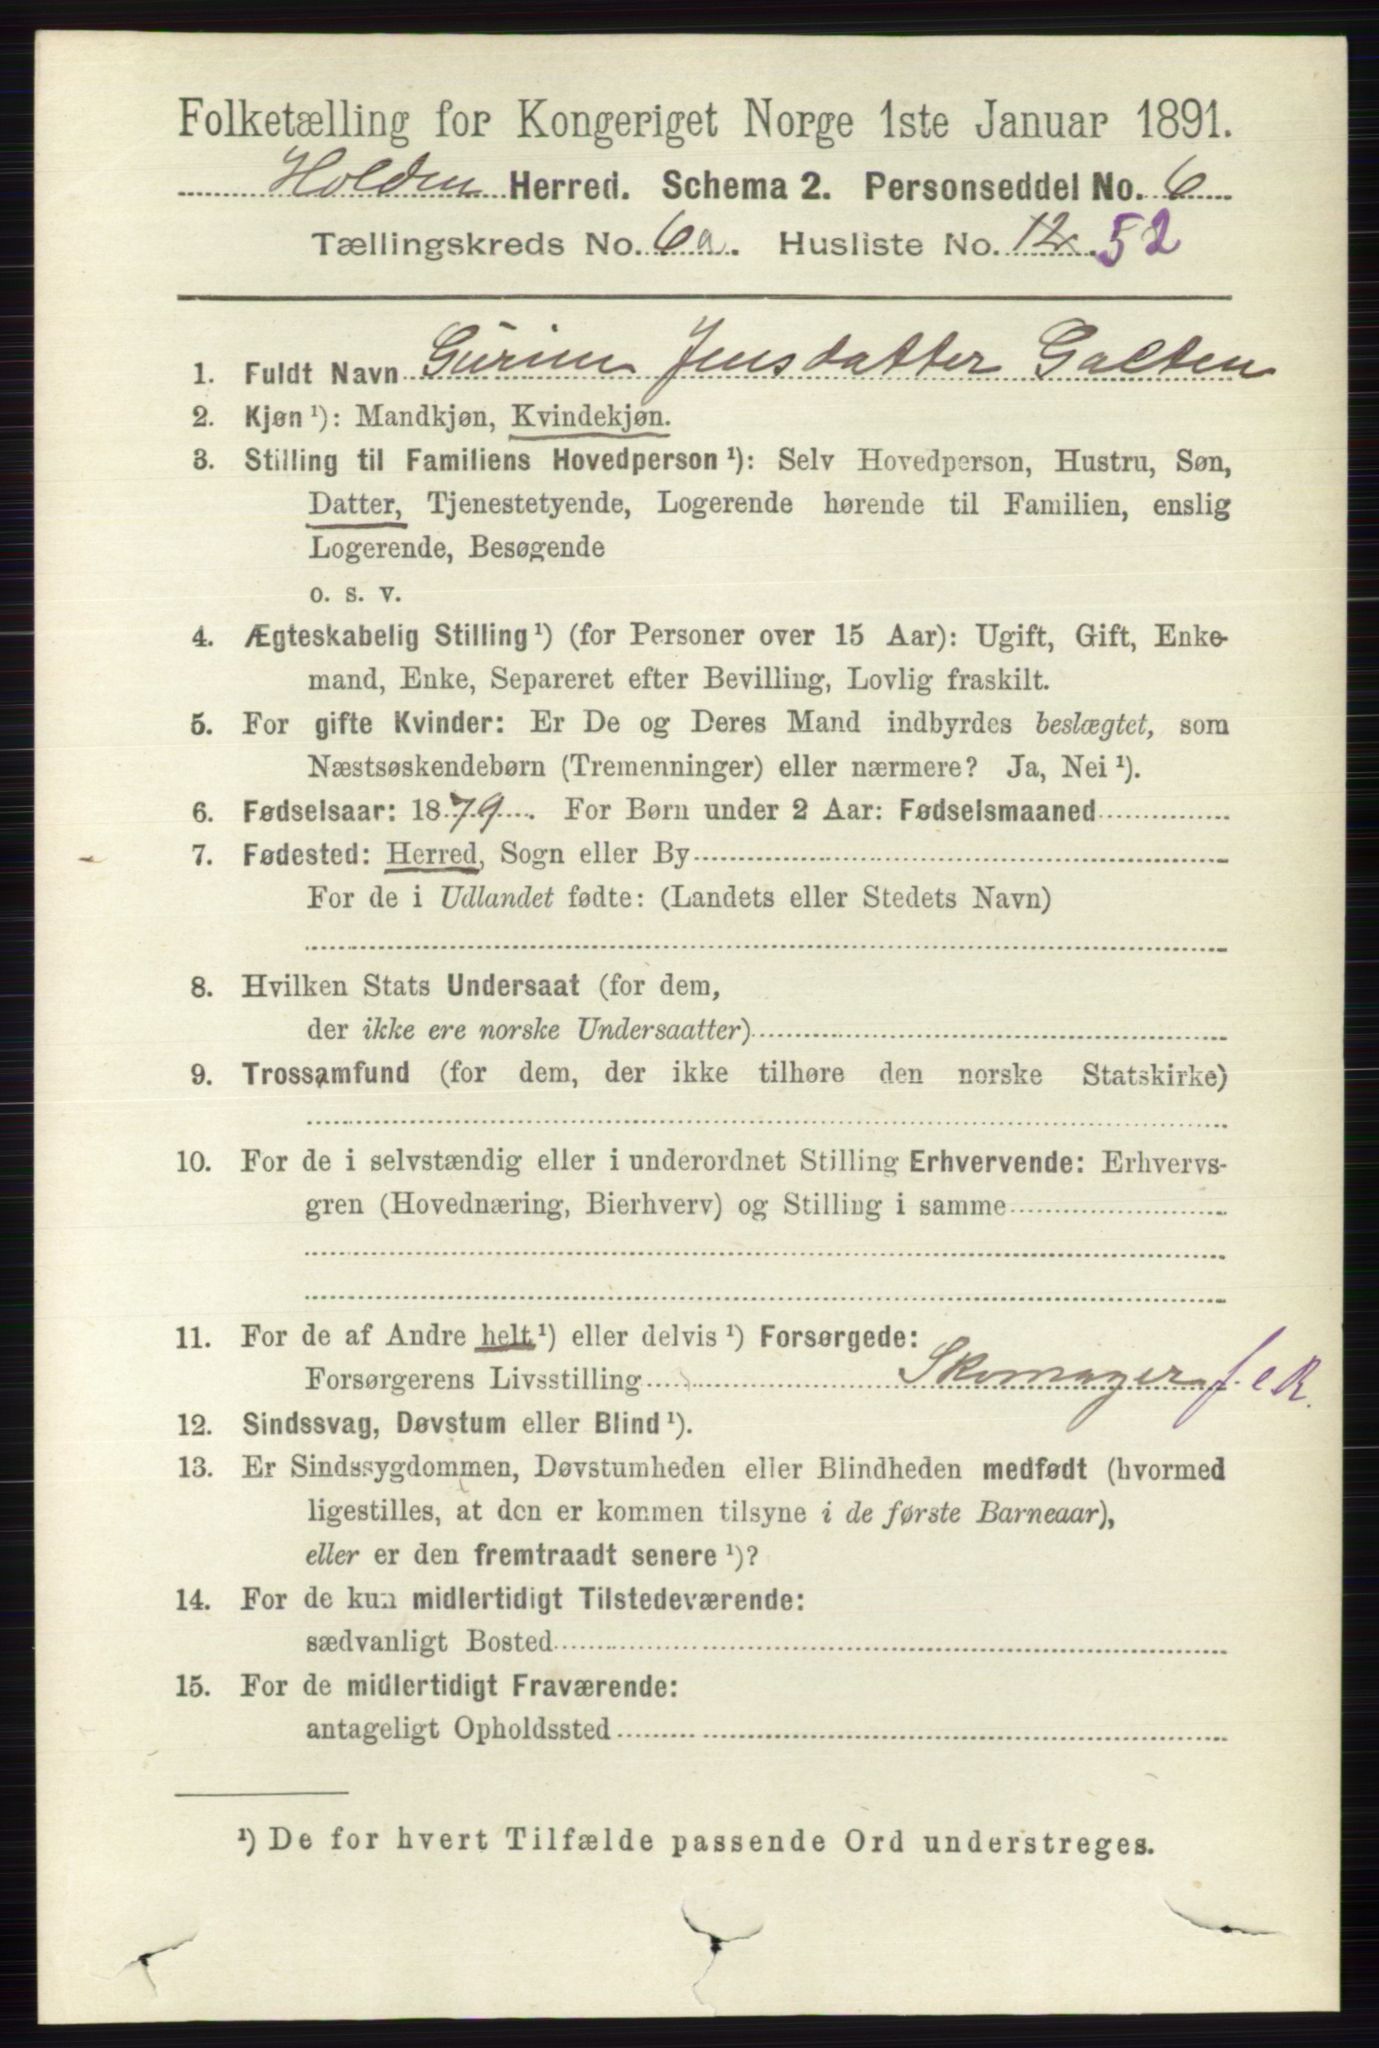 Folketælling for Kongeriget Norge 1ste Januar 1891.
Holden Herred. Schema 2. Personseddel No. 6
Tællingskreds No. 6a. Husliste No. 12. 52
1. Fuldt Navn Gurine Jensdatter Galten
2. Kjøn ¹): Mandkjøn, Kvindekjøn.
3. Stilling til Familiens Hovedperson ¹): Selv Hovedperson, Hustru, Søn,
Datter, Tjenestetyende, Logerende hørende til Familien, enslig
Logerende, Besøgende
o. s. v.
4. Ægteskabelig Stilling ¹) (for Personer over 15 Aar): Ugift, Gift, Enke-
mand, Enke, Separeret efter Bevilling, Lovlig fraskilt.
5. For gifte Kvinder: Er De og Deres Mand indbyrdes beslægtet, som
Næstsøskendebørn (Tremenninger) eller nærmere? Ja, Nei ¹).
6. Fødselsaar: 1879. For Børn under 2 Aar: Fødselsmaaned
7. Fødested: Herred, Sogn eller By
For de i Udlandet fødte: (Landets eller Stedets Navn)
8. Hvilken Stats Undersaat (for dem,
der ikke ere norske Undersaatter)
9. Trossamfund (for dem, der ikke tilhøre den norske Statskirke)
10. For de i selvstændig eller i underordnet Stilling Erhvervende: Erhvervs-
gren (Hovednæring, Bierhverv) og Stilling i samme
11. For de af Andre helt ¹) eller delvis ¹) Forsørgede:
Forsørgerens Livsstilling Skomager f. e R.
12. Sindssvag, Døvstum eller Blind ¹).
13. Er Sindssygdommen, Døvstumheden eller Blindheden medfødt (hvormed
ligestilles, at den er kommen tilsyne i de første Barneaar),
eller er den fremtraadt senere ¹)?
14. For de kun midlertidigt Tilstedeværende:
sædvanligt Bosted
15. For de midlertidigt Fraværende:
antageligt Opholdssted
¹) De for hvert Tilfælde passende Ord understreges.